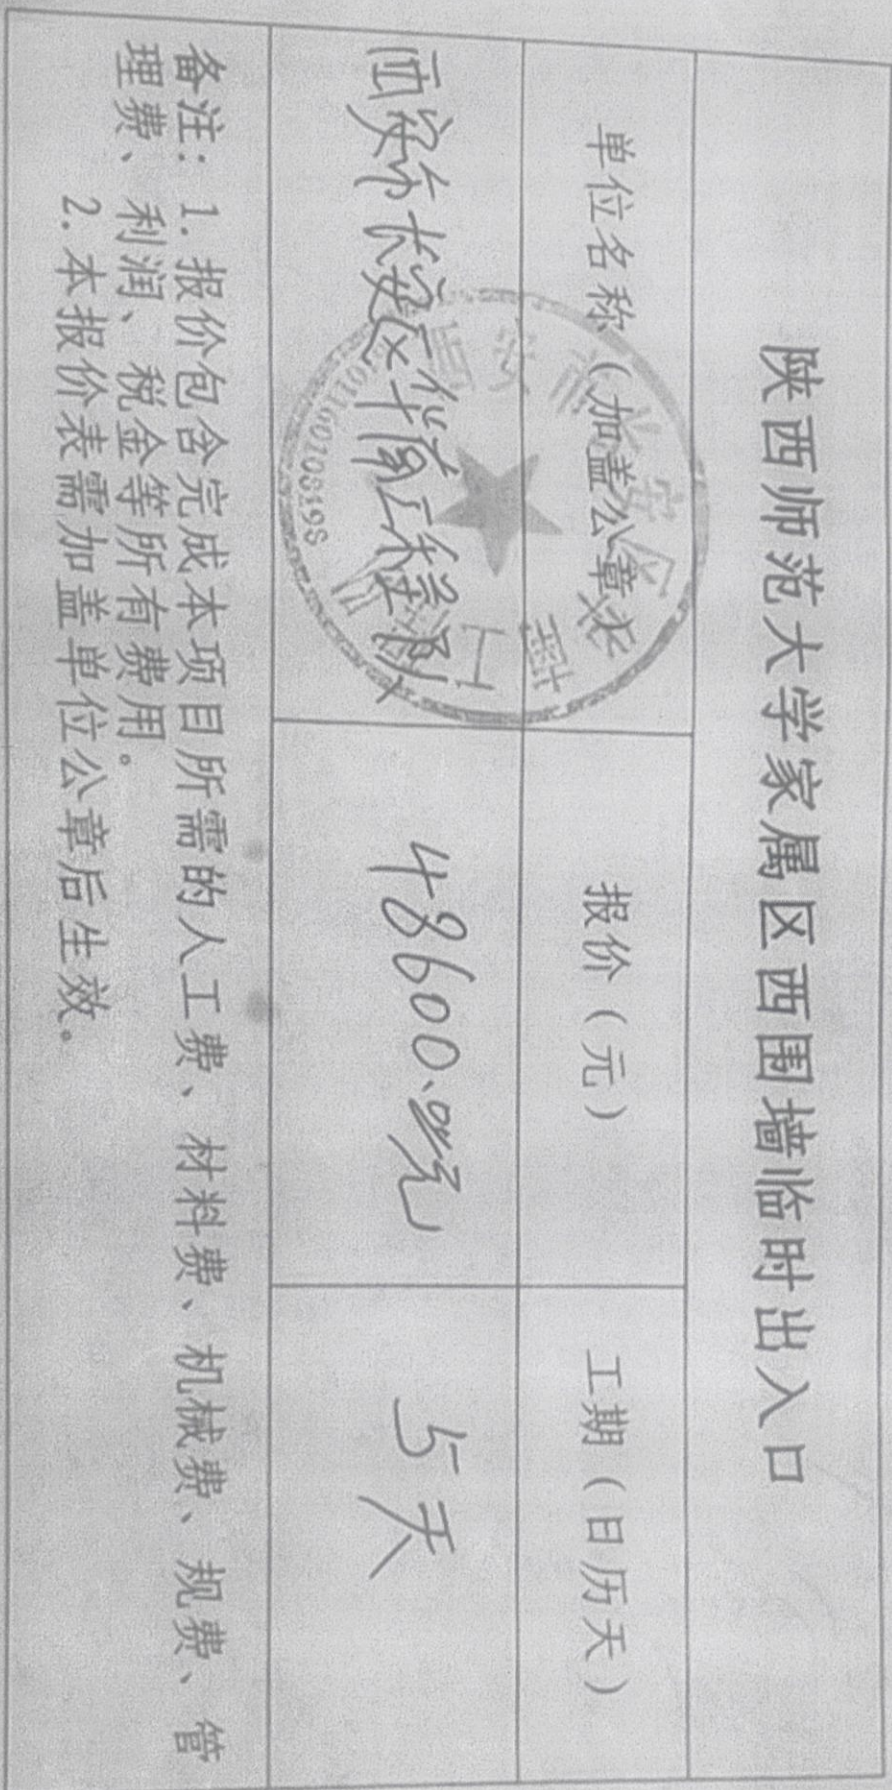 陕西师范大学家属区西围墙临时出入口
单位名称（加盖公章） 报价（元） 工期（日历天）
西安市长安区华 工程队 48600.00元 5天
备注：1. 报价包含完成本项目所需的人工费、材料费、机械费、规费、管
理费、利润、税金等所有费用。
2. 本报价表需加盖单位公章后生效。